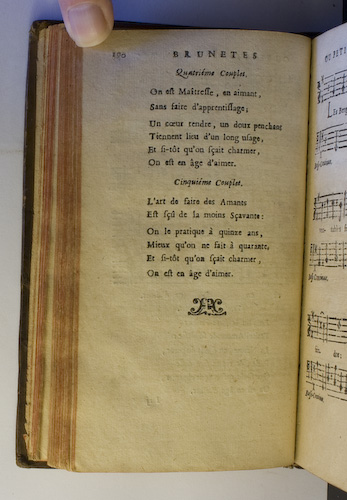 190 BRUNETES
Quatriéme Couplet.
On est Maîtresse, en aimant,
Sans faire d'apprentissage;
Un cœur tendre, un doux penchant
Tiennent lieu d'un long usage,
Et si-tôt qu'on sçait charmer,
On est en âge d'aimer.
Cinquiéme Couplet.
L'art de faire des Amants
Est sçû de la moins Sçavante:
On le pratique à quinze ans,
Mieux qu'on ne fait à quarante,
Et si-tôt qu'on sçait charmer,
On est en âge d'aimer.
OU PETI